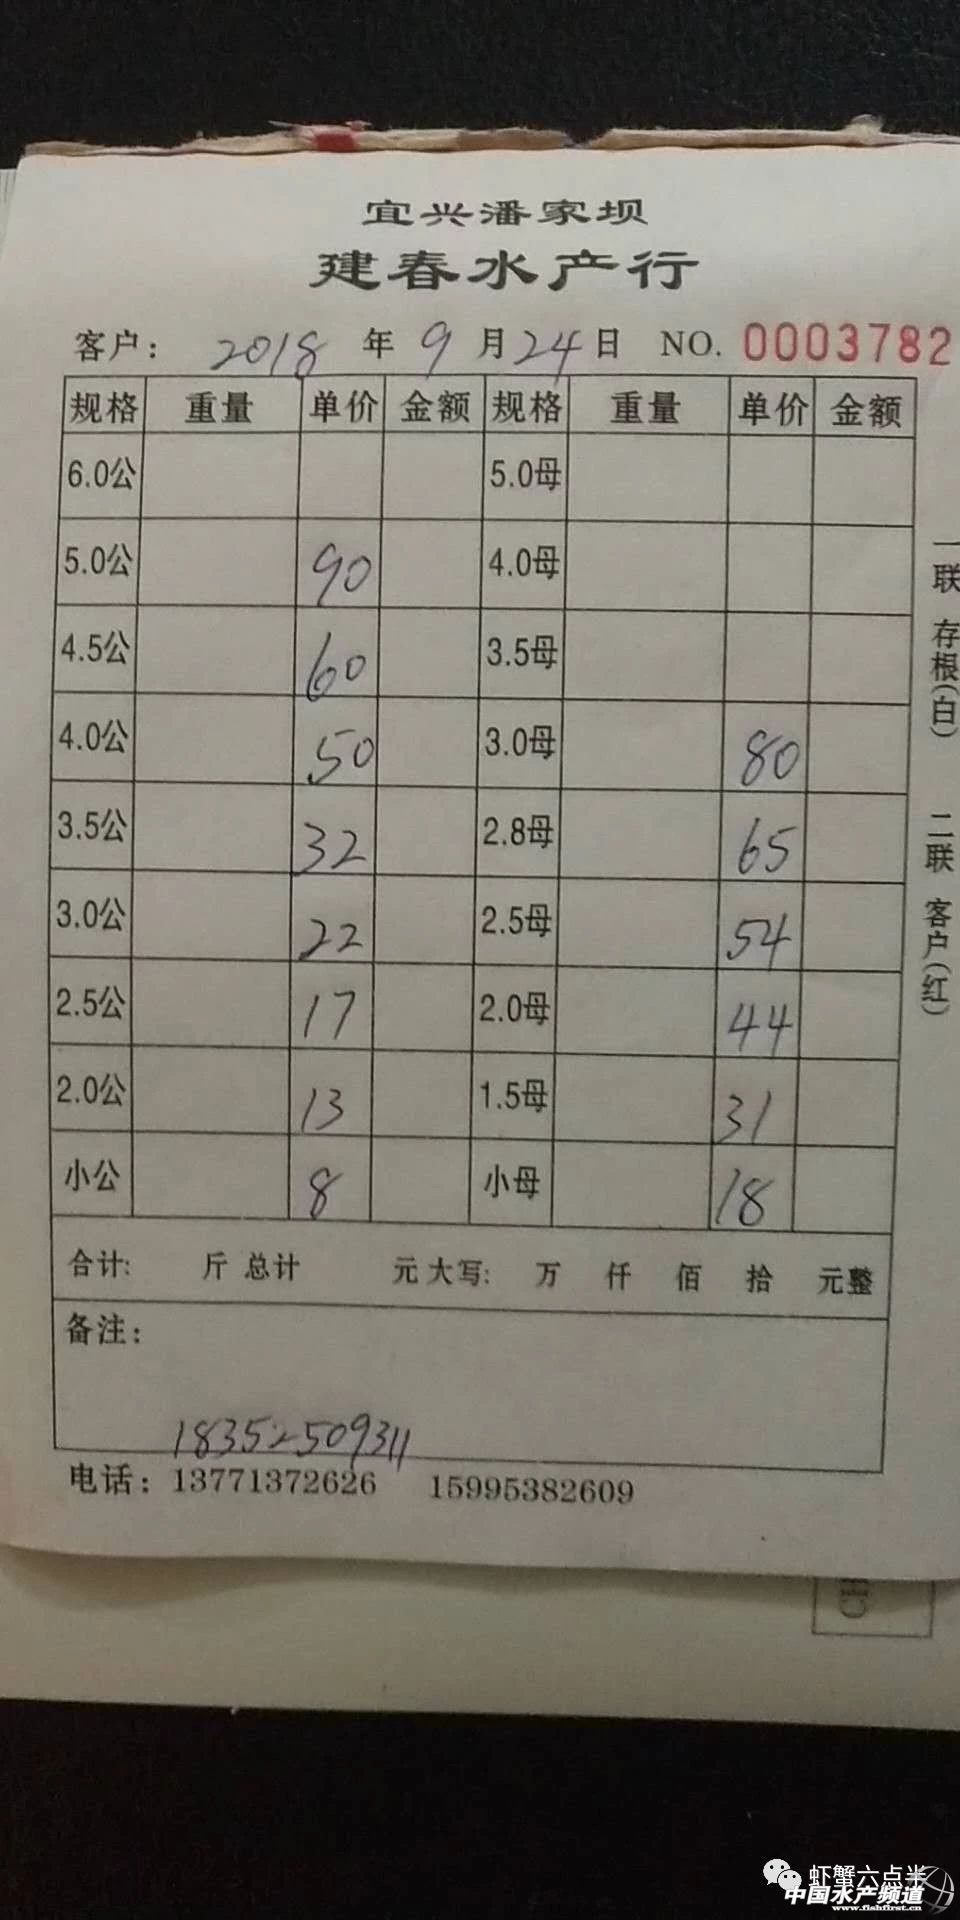 宜兴潘家坝
建春水产行
客户: 2018 年 9 月 24 日 NO. 0003782
规格 重量 单价 金额 规格 重量 单价 金额
6.0公 5.0母
5.0公 90 4.0母
4.5公 60 3.5母
4.0公 50 3.0母 80
3.5公 32 2.8母 65
3.0公 22 2.5母 54
2.5公 17 2.0母 44
2.0公 13 1.5母 31
小公 8 小母 18
合计: 斤 总计 元 大写: 万 仟 佰 拾 元整
备注:
18352509311
电话: 13771372626 15995382609
一联 存根(白) 二联 客户(红)
虾蟹六点半
中国水产频道
www.fishfirst.cn